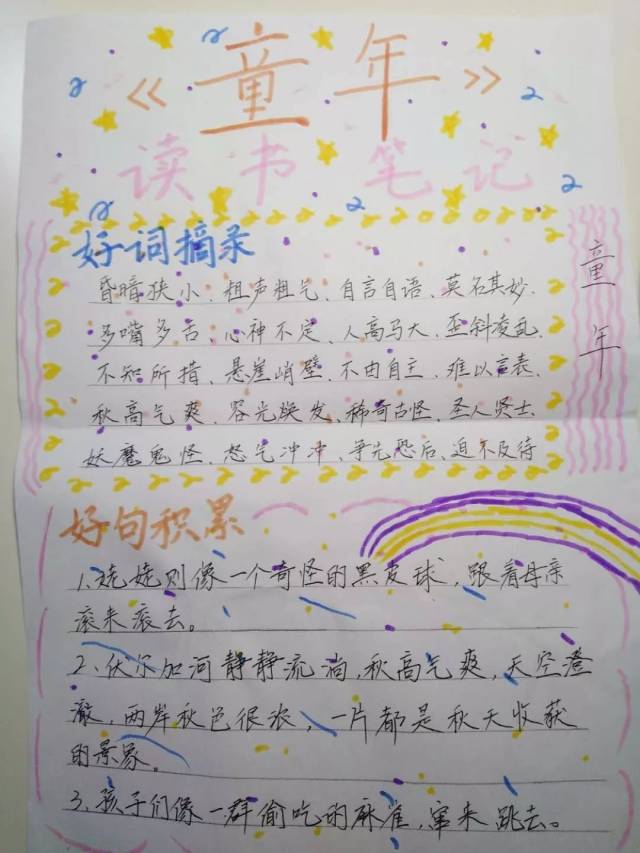 《童年》
读书笔记
好词摘录
昏暗狭小、粗声粗气、自言自语、莫名其妙、
多嘴多舌、心神不定、人高马大、歪斜凌乱、
不知所措、悬崖峭壁、不由自主、难以言表、
秋高气爽、容光焕发、稀奇古怪、圣人贤士、
妖魔鬼怪、怒气冲冲、争先恐后、迫不及待
童年
好句积累
1、姥姥则像一个奇怪的黑皮球，跟着母亲
滚来滚去。
2、伏尔加河静静流淌，秋高气爽，天空澄
澈，两岸秋色很浓，一片都是秋天收获
的景象。
3、孩子们像一群偷吃的麻雀，窜来跳去。